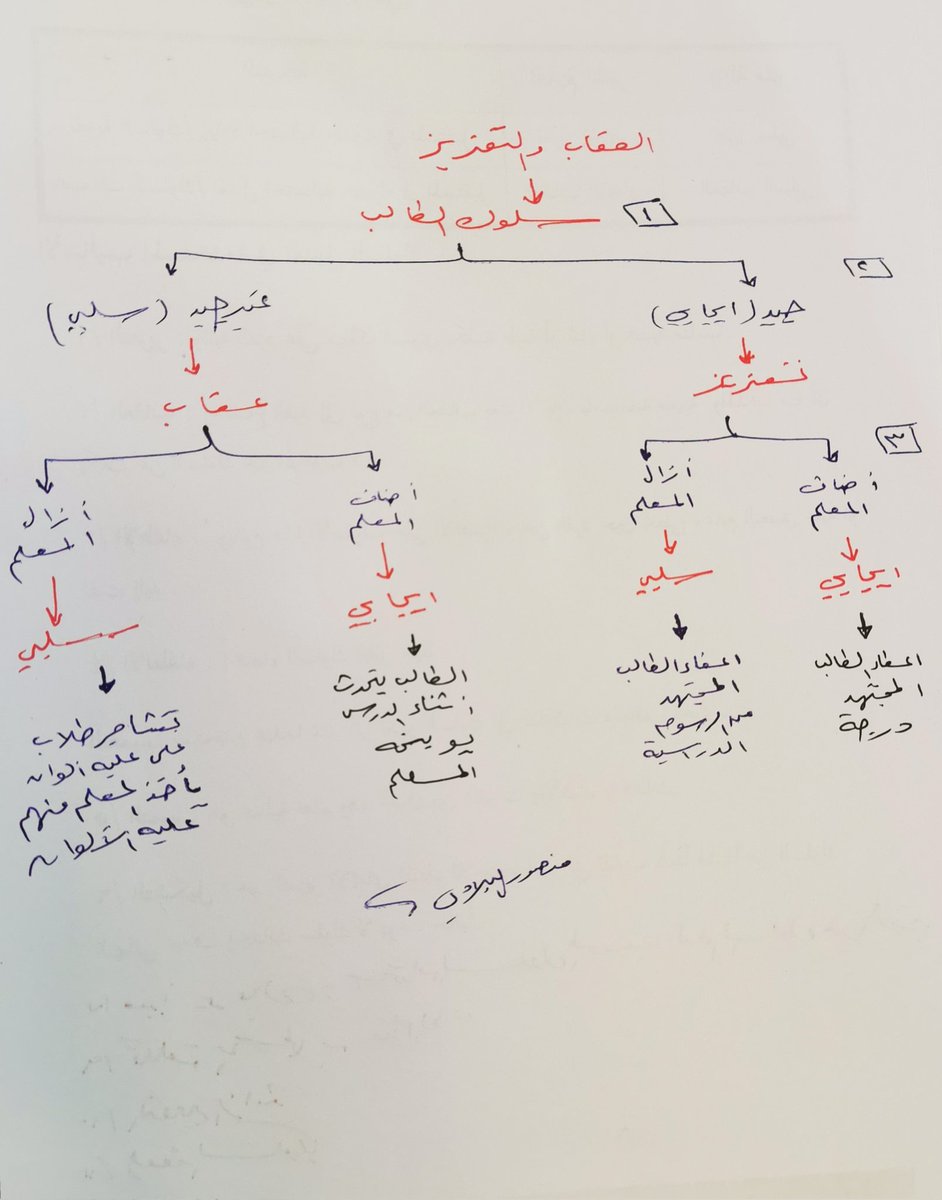 العقاب والتعزيز
سلوك الطالب
١
٢
جيد (ايجابي)
غير جيد (سلبي)
تعزيز
عقاب
٣
أضاف
المعلم
أزال
المعلم
أضاف
المعلم
أزال
المعلم
ايجابي
سلبي
ايجابي
سلبي
اعطاء الطالب
المجتهد
درجة
اعفاء الطالب
المجتهد
من الرسوم
الدراسية
الطالب يتحدث
أثناء الدرس
يوبخه
المعلم
تشاجر طلاب
على علبه الوان
يأخذ المعلم منهم
علبه الألوان
منصور البلادي